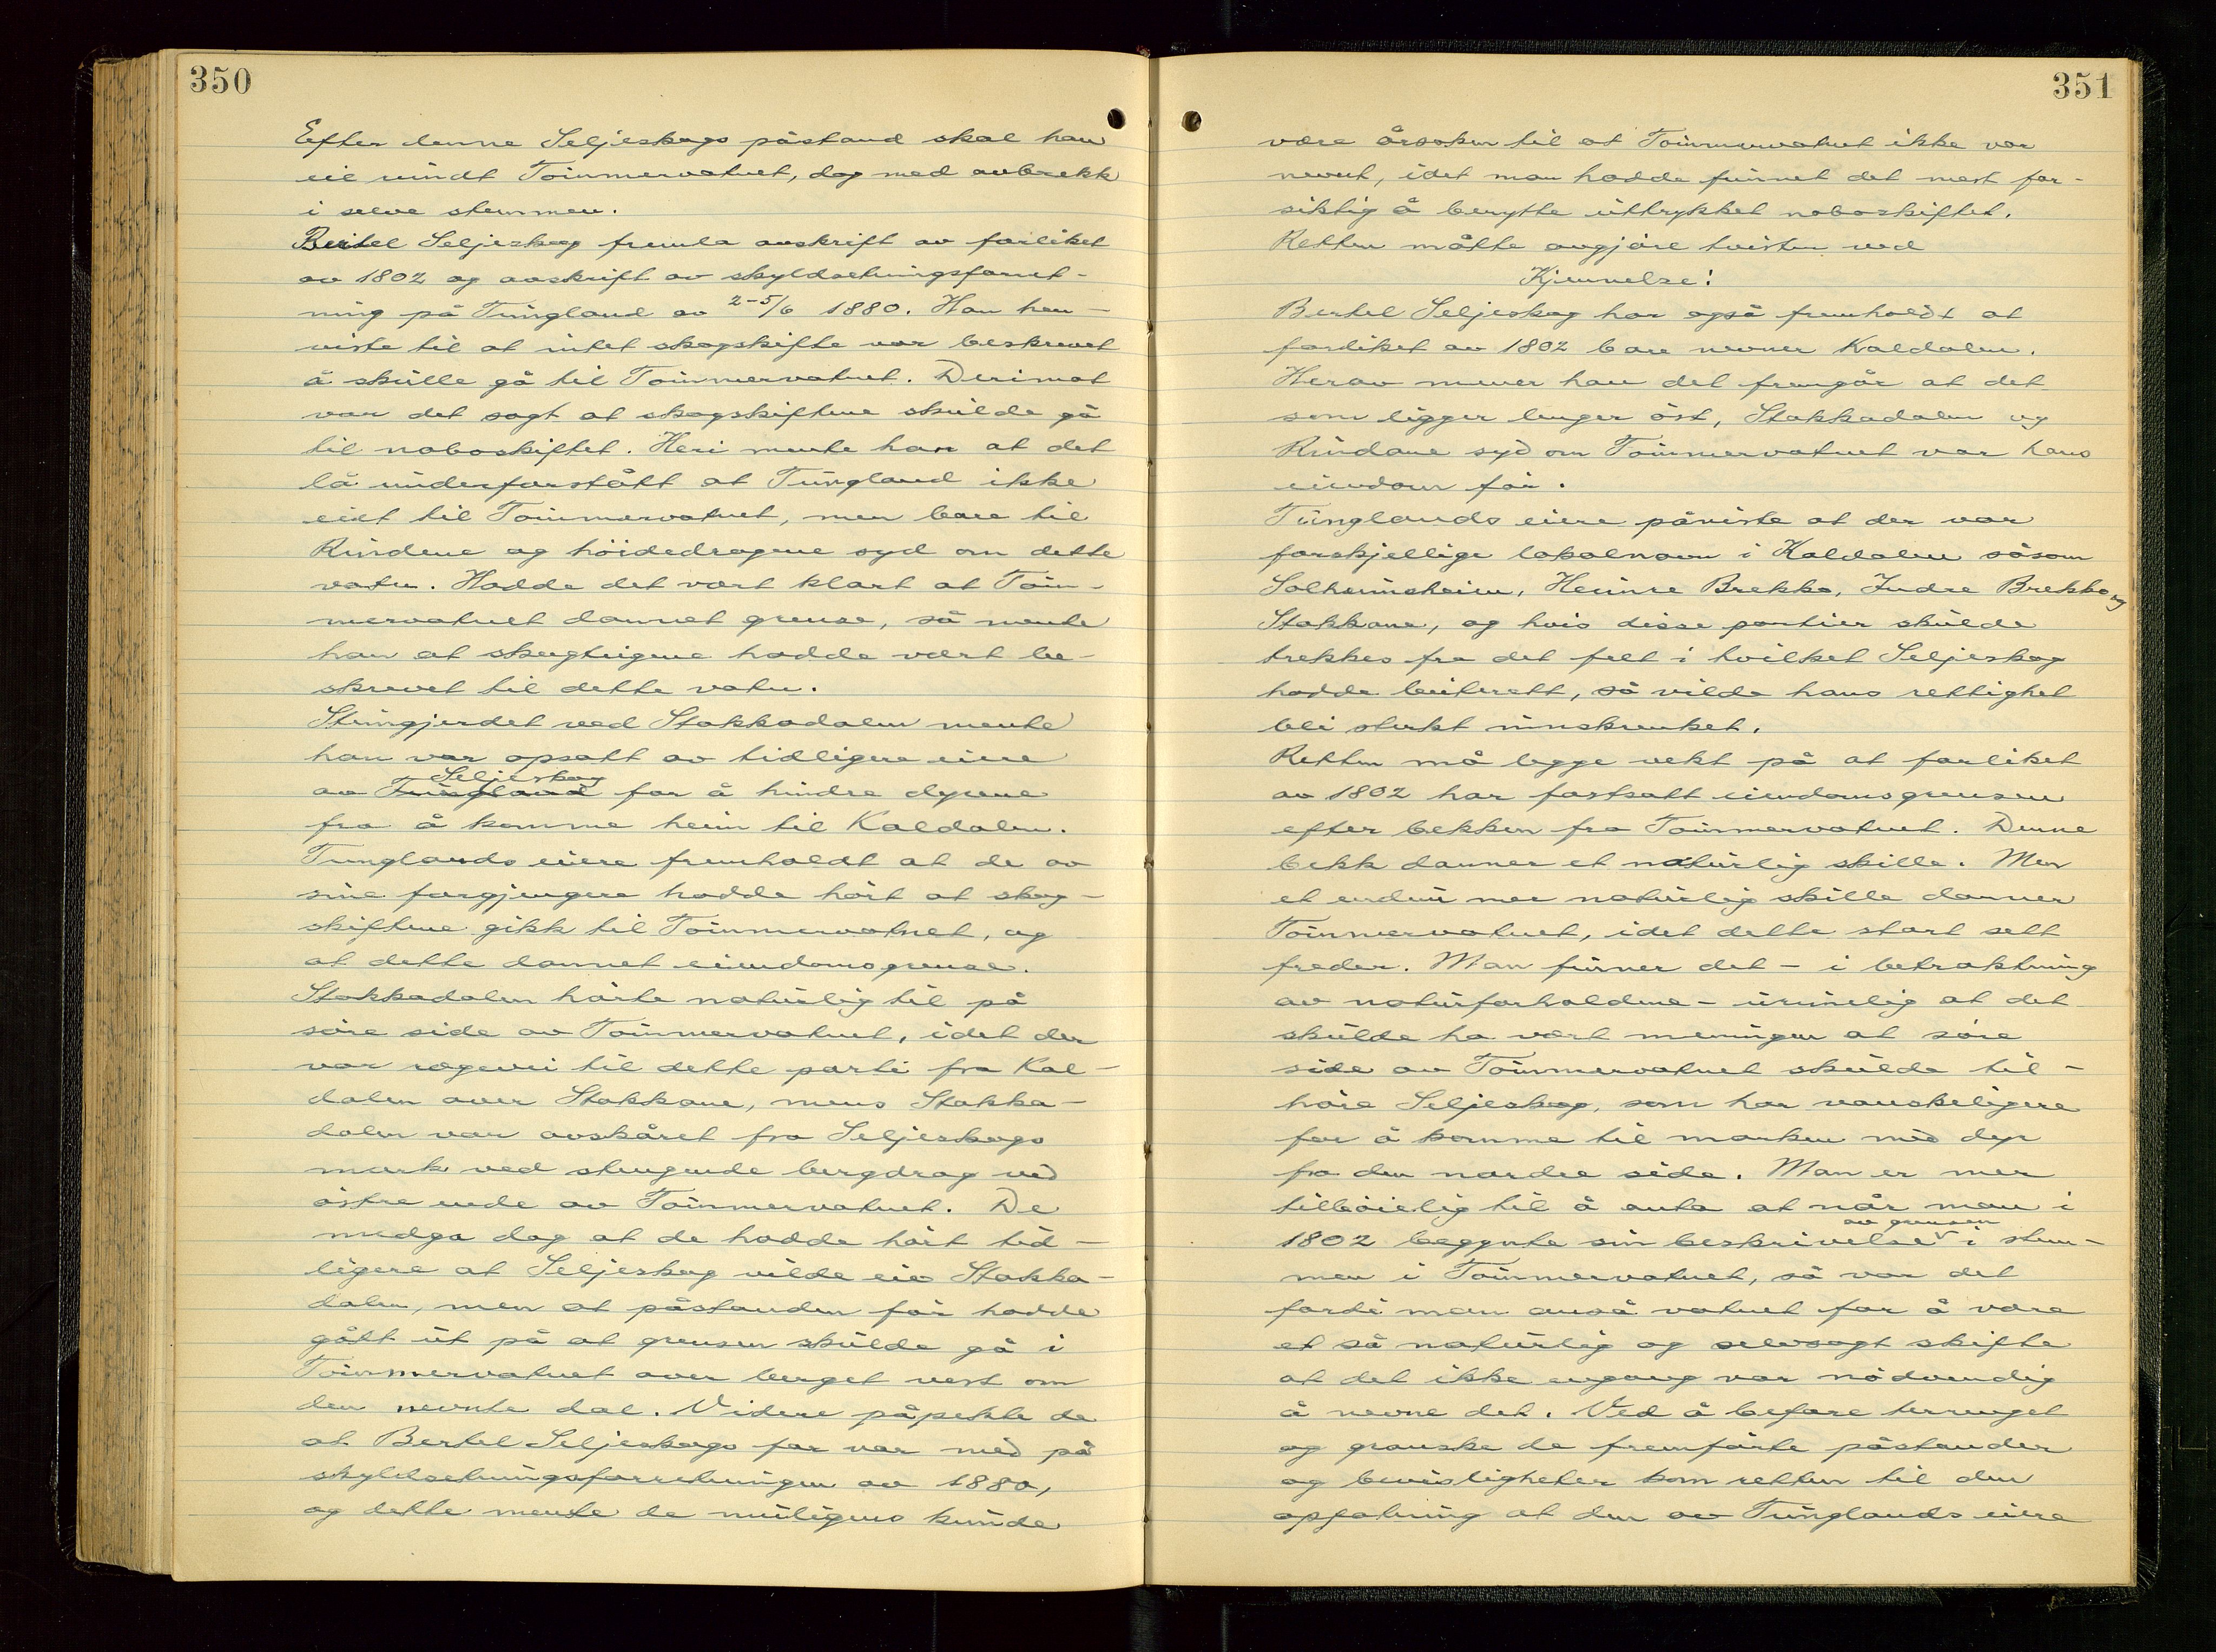 350
Efter denne Seljeskogs påstand skal han
eie rundt Tömmervatnet, dog med avbrekk
i selve stemmen.
Bertel Seljeskog fremla avskrift av forliket
av 1802 og avskrift av skyldsetningsforret-
ning på Tungland av 2-5/6 1880. Han hen-
viste til at intet skogskifte var beskrevet
å skulle gå til Tömmervatnet. Derimot
var det sagt at skogskiftene skulde gå
til naboskiftet. Heri mente han at det
lå underforstått at Tungland ikke
eiet til Tömmervatnet, men bare til
Rindene og höidedragene syd om dette
vatn. Hadde det vært klart at Töm-
mervatnet dannet grense, så mente
han at skogteigene hadde vært be-
skrevet til dette vatn.
Steingjerdet ved Stakkadalen mente
han var opsatt av tidligere eiere
Seljeskog
av Tungland for å hindre dyrene
fra å komme heim til Kaldalen.
Tunglands eiere fremholdt at de av
sine forgjengere hadde hört at skog-
skiftene gikk til Tömmervatnet, og
at dette dannet eiendomsgrense.
Stakkadalen hörte naturlig til på
söre side av Tömmervatnet, idet der
var rægevei til dette parti fra Kal-
dalen over Stakkane, mens Stakka-
dalen var avskåret fra Seljeskogs
mark ved stengende bergdrag ved
östre ende av Tömmervatnet. De
medga dog at de hadde hört tid-
ligere at Seljeskog vilde eie Stakka-
dalen, men at påstanden för hadde
gått ut på at grensen skulde gå i
Tömmervatnet over berget vest om
den nevnte dal. Videre påpekte de
at Bertel Seljeskogs far var med på
skyldsetningsforretningen av 1880,
og dette mente de muligens kunde
351
være årsaken til at Tömmervatnet ikke var
nevnt, idet man hadde funnet det mest for-
siktig å benytte uttrykket naboskiftet.
Retten måtte avgjöre tvisten ved
Kjennelse:
Bertel Seljeskog har også fremholdt at
forliket av 1802 bare nevner Kaldalen.
Herav mener han det fremgår at det
som ligger lenger öst, Stakkadalen og
Rindane syd om Tömmervatnet var hans
eiendom för.
Tunglands eiere påviste at der var
forskjellige lokalnavn i Kaldalen såsom
Solheimsheien, Heimre Brekko, Indre Brekko og
Stakkane, og hvis disse partier skulde
trekkes fra det felt i hvilket Seljeskog
hadde beiterett, så vilde hans rettighet
bli sterkt innskrenket.
Retten må legge vekt på at forliket
av 1802 har fastsatt eiendomsgrensen
efter bekken fra Tömmervatnet. Denne
bekk danner et naturlig skille. Men
et endnu mer naturlig skille danner
Tömmervatnet, idet dette stort sett
freder. Man finner det - i betraktning
av naturforholdene - urimelig at det
skulde ha vært meningen at söre
side av Tömmervatnet skulde til-
höre Seljeskog, som har vanskeligere
for å komme til marken med dyr
fra den nordre side. Man er mer
tilböielig til å anta at når man i
av grensen
1802 begynte sin beskrivelse i stem-
men i Tömmervatnet, så var det
fordi man anså vatnet for å være
et så naturlig og selvsagt skifte
at det ikke engang var nödvendig
å nevne det. Ved å befare terrenget
og granske de fremförte påstander
og bevisligheter kom retten til den
opfatning at den av Tunglands eiere